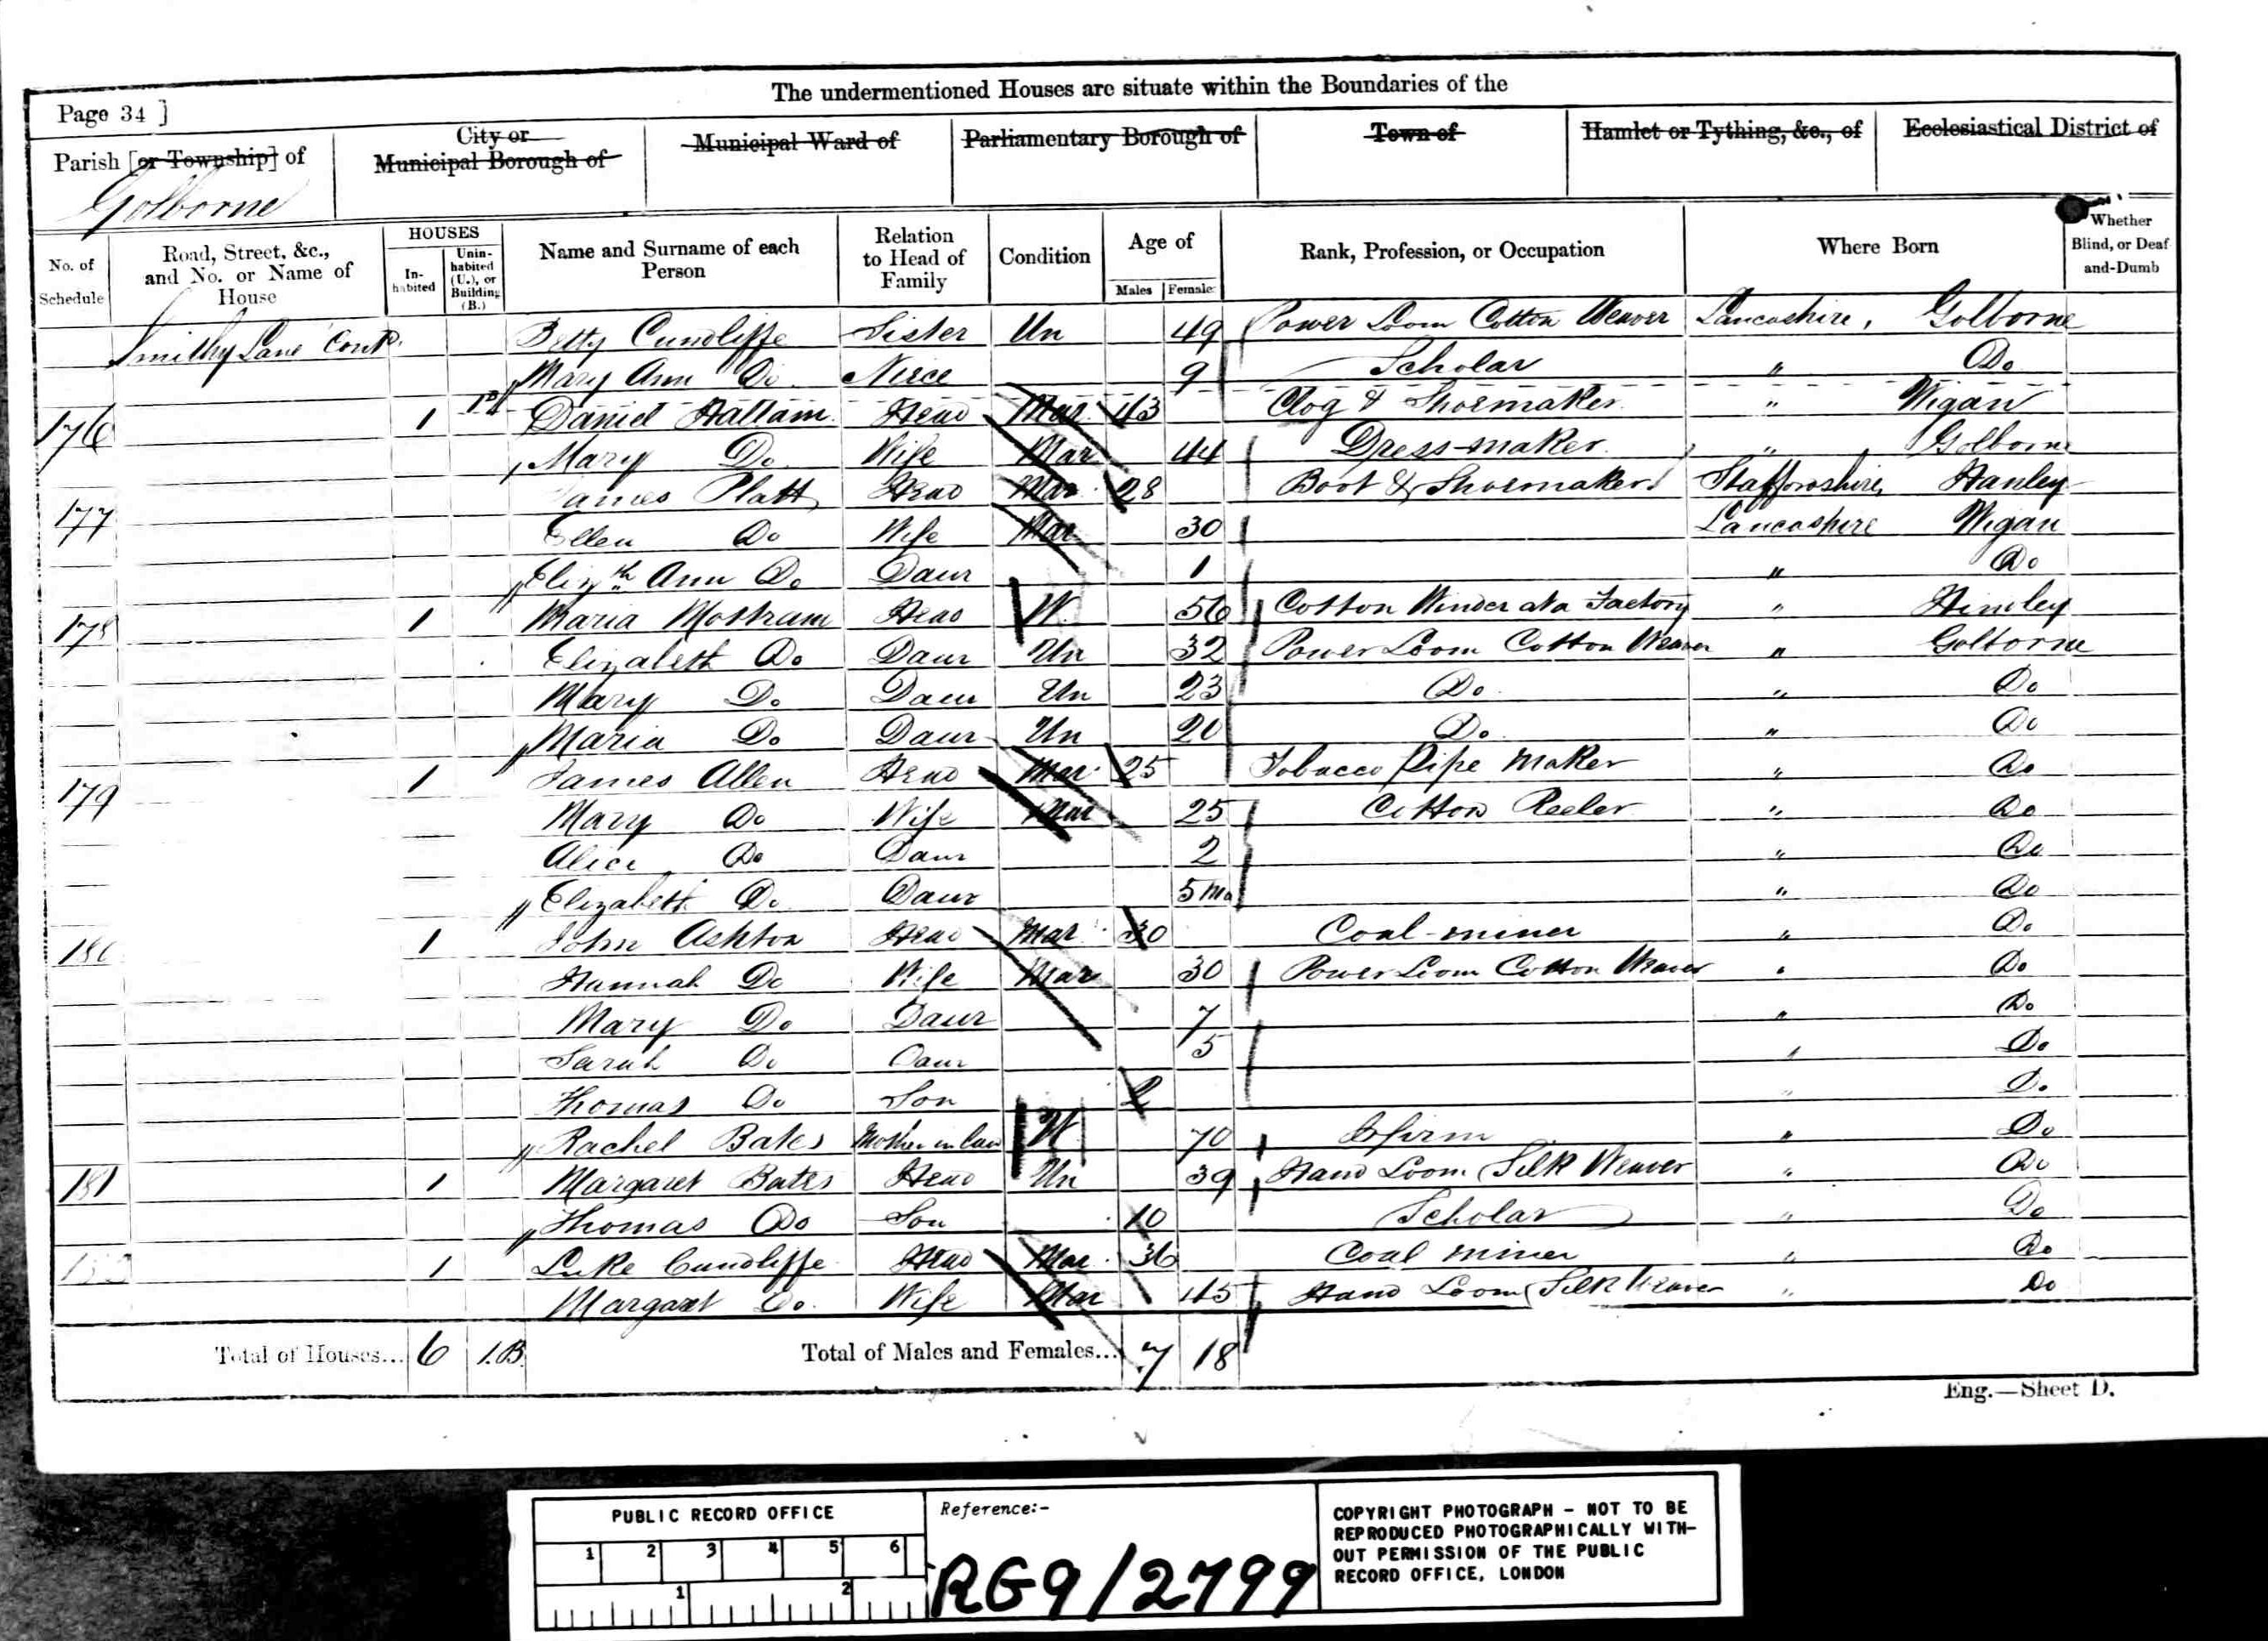 The undermentioned Houses are situate within the Boundaries of the
Page 34 ]
Parish [or Township] of
Golborne
City or
Municipal Borough of
Municipal Ward of
Parliamentary Borough of
Town of
Hamlet or Tything, &c., of
Ecclesiastical District of
No. of Schedule
Road, Street, &c., and No. or Name of House
HOUSES
Inhabited
Uninhabited (U.), or Building (B.)
Name and Surname of each Person
Relation to Head of Family
Condition
Age of
Males
Females
Rank, Profession, or Occupation
Where Born
Whether Blind, or Deaf-and-Dumb
Smithy Lane Contd. Betty Cundliffe Sister Un 49 Power Loom Cotton Weaver Lancashire, Golborne
Mary Ann Do. Niece 9 Scholar " Do
176 1 1B Daniel Hallam Head Mar 43 Clog & Shoemaker " Wigan
Mary Do Wife Mar 44 Dress-maker " Golborne
177 James Platt Head Mar 28 Boot & Shoemaker Staffordshire, Hanley
Ellen Do Wife Mar 30 Lancashire Wigan
Elizth Ann Do Daur 1 " Do
178 1 Maria Mottram Head W. 56 Cotton Winder at a Factory " Hindley
Elizabeth Do Daur Un 32 Power Loom Cotton Weaver " Golborne
Mary Do Daur Un 23 Do. " Do
Maria Do Daur Un 20 Do. " Do
179 1 James Allen Head Mar 25 Tobacco Pipe Maker " Do
Mary Do Wife Mar 25 Cotton Reeler " Do
Alice Do Daur 2 " Do
Elizabeth Do Daur 5 mo " Do
180 1 John Ashton Head Mar 30 Coal-miner " Do
Hannah Do Wife Mar 30 Power Loom Cotton Weaver " Do
Mary Do Daur 7 " Do
Sarah Do Daur 5 " Do
Thomas Do Son 2 " Do
Rachel Bates Mother in law W 70 " Do
181 1 Margaret Bates Head Un 39 Hand Loom Silk Weaver " Do
Thomas Do Son 10 Scholar " Do
182 1 Luke Cundliffe Head Mar 36 Coal miner " Do
Margaret Do. Wife Mar 45 Hand Loom Silk Weaver " Do
Total of Houses... 6 1.B. Total of Males and Females... 7 18
Eng.—Sheet D.
PUBLIC RECORD OFFICE
1 2 3 4 5 6
1 2
Reference:-
RG9/2799
COPYRIGHT PHOTOGRAPH - NOT TO BE
REPRODUCED PHOTOGRAPHICALLY WITH-
OUT PERMISSION OF THE PUBLIC
RECORD OFFICE, LONDON